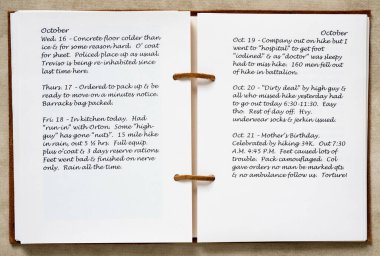 October
Wed. 16 - Concrete floor colder than
ice & for some reason hard. O' coat
for sheet. Policed place up as usual.
Treviso is being re-inhabited since
last time here.
Thurs. 17 - Ordered to pack up & be
ready to move on a minutes notice.
Barracks bag packed.
Fri. 18 - In kitchen today. Had
"run-in" with Orton. Some "high-
guy" has gone "nuts". 15 mile hike
in rain, out 5 ½ hrs. Full equip.
plus o'coat & 3 days reserve rations.
Feet went bad & finished on nerve
only. Rain all the time.
October
Oct. 19 - Company out on hike but I
went to "hospital" to get foot
"iodined" & as "doctor" was sleepy
had to miss hike. 160 men fell out
of hike in battalion.
Oct. 20 - "Dirty deal" by high guy &
all who missed hike yesterday had
to go out today 6:30-11:30. Easy
tho. Rest of day off. Hvy.
underwear socks & jerkin issued.
Oct. 21 - Mother's Birthday.
Celebrated by hiking 34K. Out 7:30
A.M. 4:45 P.M. Feet caused lots of
trouble. Pack camouflaged. Col
gave orders no man be marked qts
& no ambulance follow us. Torture!